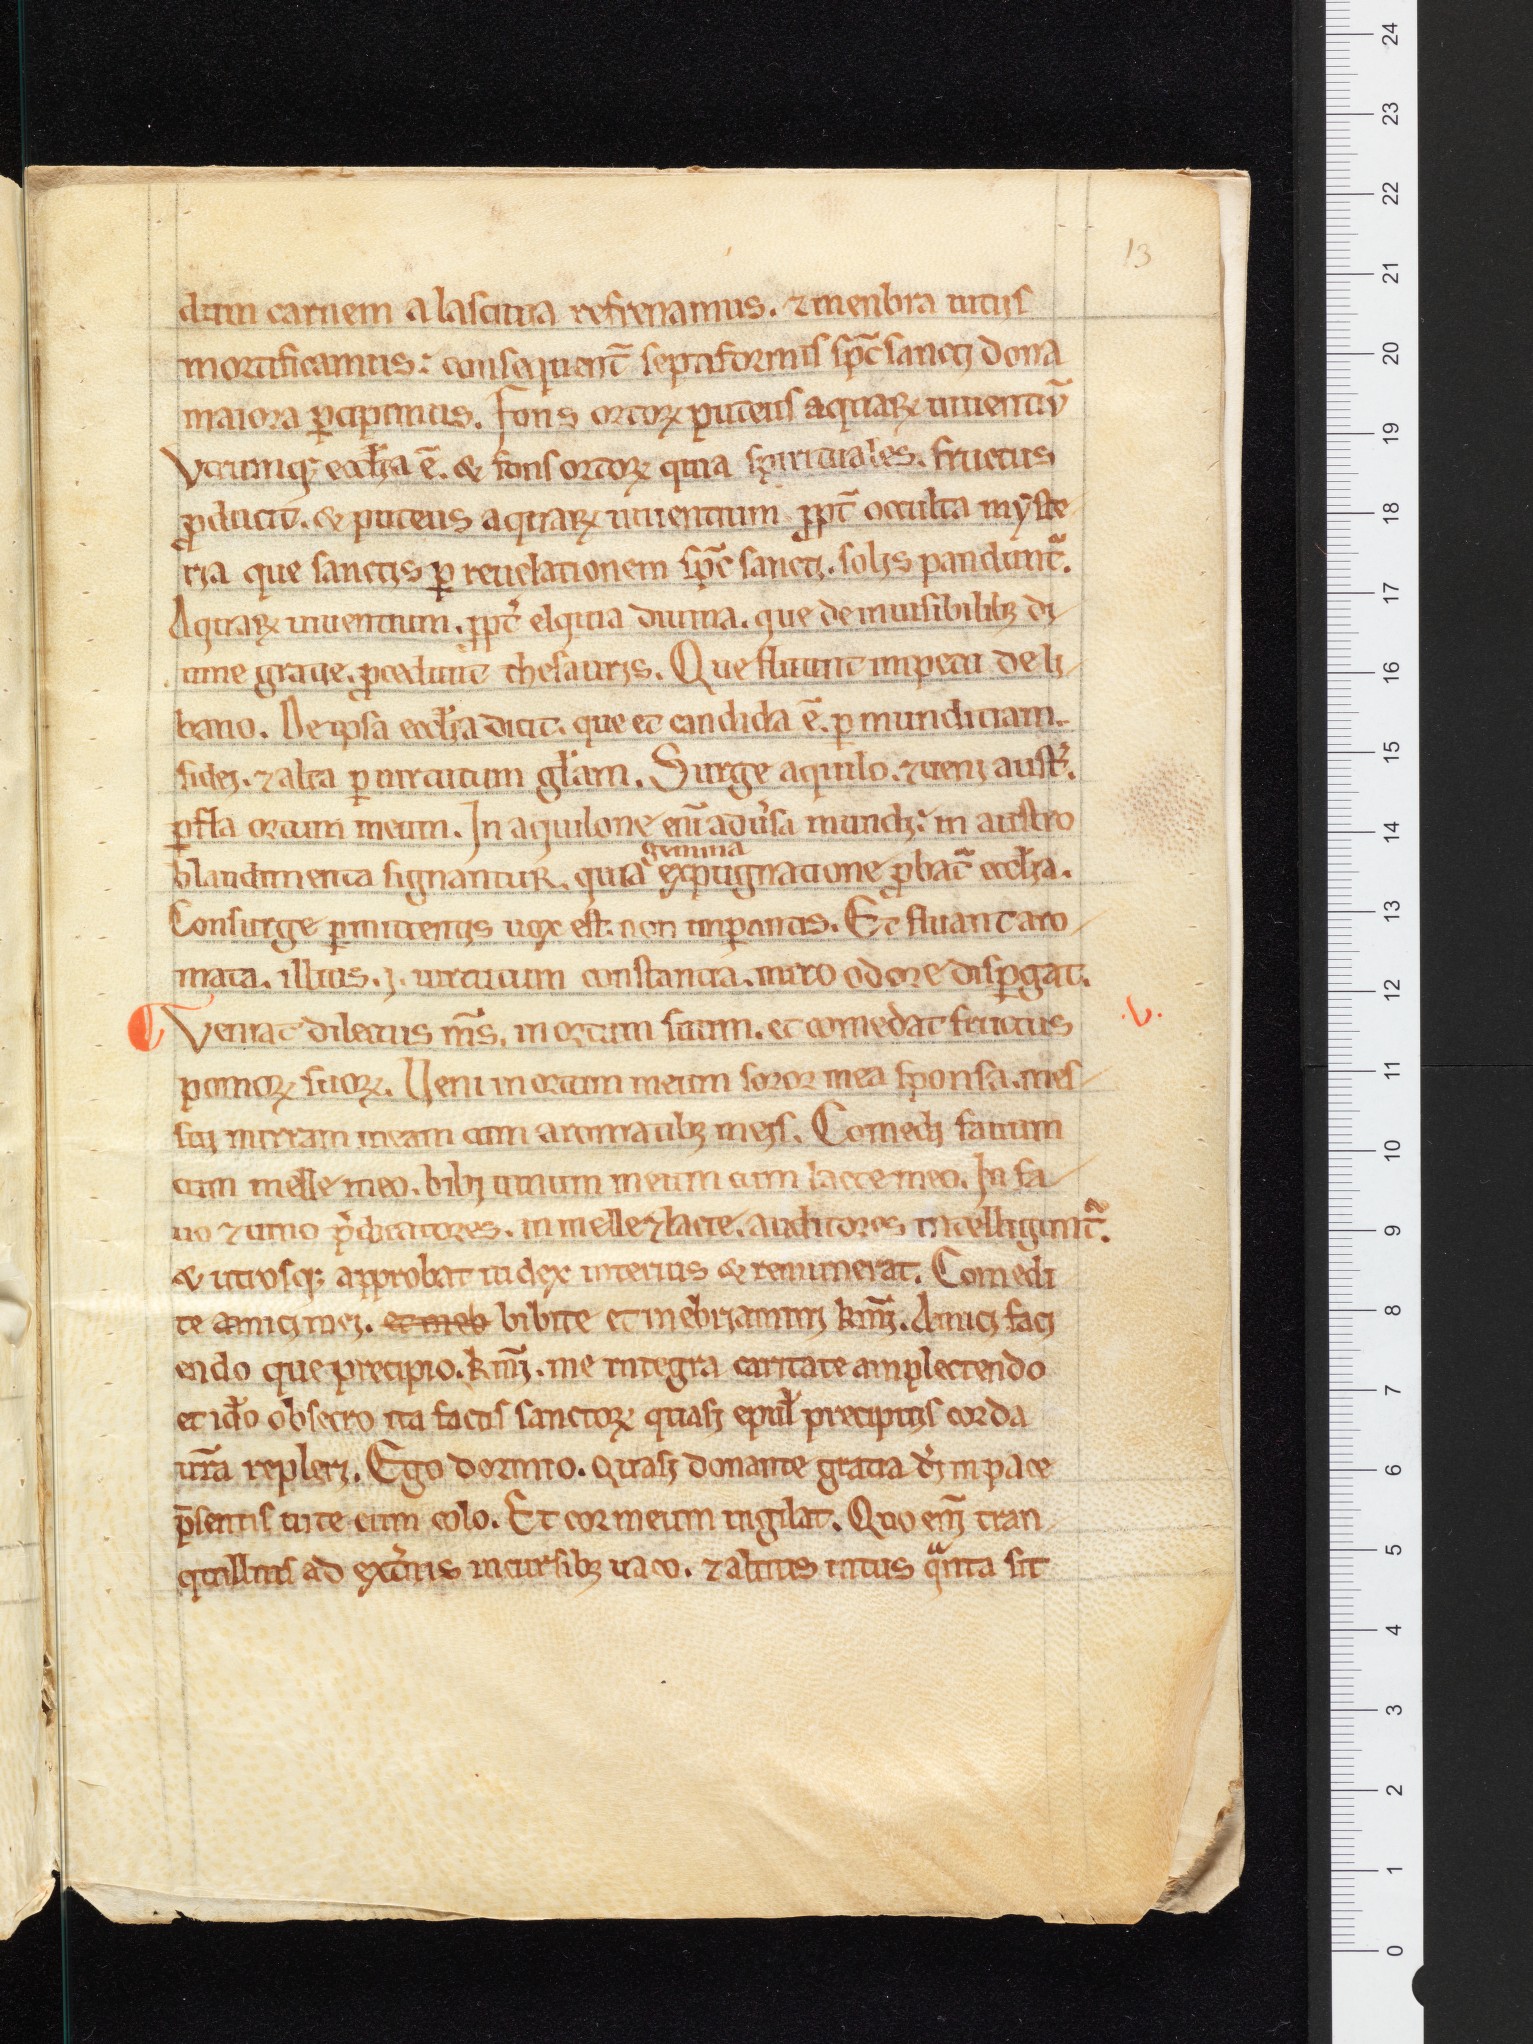 13
dum carnem a lasciuia refrenamus. ⁊ menbra uiciis
mortificamus: consequent̃ septiformis sp̃c sancti dona
maiora ꝑcipimus. Fons ortoꝝ puteus aquaꝝ uiuentiũ
Vtrumq; eccl̃ia ẽ. & fons ortoꝝ quia spirituales. fructus
ꝓducit. & puteus aquaꝝ uiuentium ꝓpt̃ occulta myste
ria que sanctis ꝑ reuelationem sp̃c sancti. solis pandunt᷑.
Aquaꝝ uiuentium. ꝓpt̃ elquia diuina. que de inuisibilibꝫ di
uine gratie. ꝓcedunt thesauris. Que fluunt impetu de li
bano. De ipsa eccl̃ia dicit. que et candida ẽ. ꝑ munditiam
fidei. ⁊ alta ꝑ uirtutum gl̃am. Surge aquilo. ⁊ ueni aust̾.
ꝑfla ortum meum. In aquilone eni᷑ adu̾sa mundi: in austro
gemina
blandimenta signantur. quia expugnatione ꝓbat᷑ eccl̃ia.
Consurge ꝑmittentis uox est. non imꝑantis. Et fluant aro
mata. illius. ị. uirtutum constantia. miro odore disꝑgat.
Veniat dilectus m̃s. in ortum suum. et comedat fructus
.V.
pomoꝝ suoꝝ. Veni in ortum meum soror mea sponsa. mes
sui mirram meam cum aromatibꝫ meis. Comedi fauum
cum melle meo. bibi uinum meum cum lacte meo. In fa
uo ⁊ uino p̾dicatores. in melle ⁊ lacte. auditores intelligunt᷑.
& utrosq; approbat iudex interius & remunerat. Comedi
te amici mei. et meb bibite et inebriamini k̃mi. Amici faci
endo que precipio. k̃mi. me integra caritate amplectendo
et id̾o obsecro ita factis sanctoꝝ quasi epul̾ precipuis corda
ur̃a repleri. Ego dormio. quasi donante gratia d̾i in pace
p̃sentis uite eum colo. Et cor meum uigilat. Quo eni᷑ tran
quillius ad ext̾nis incursibꝫ uaco. ⁊ altius intus qͣnta sit